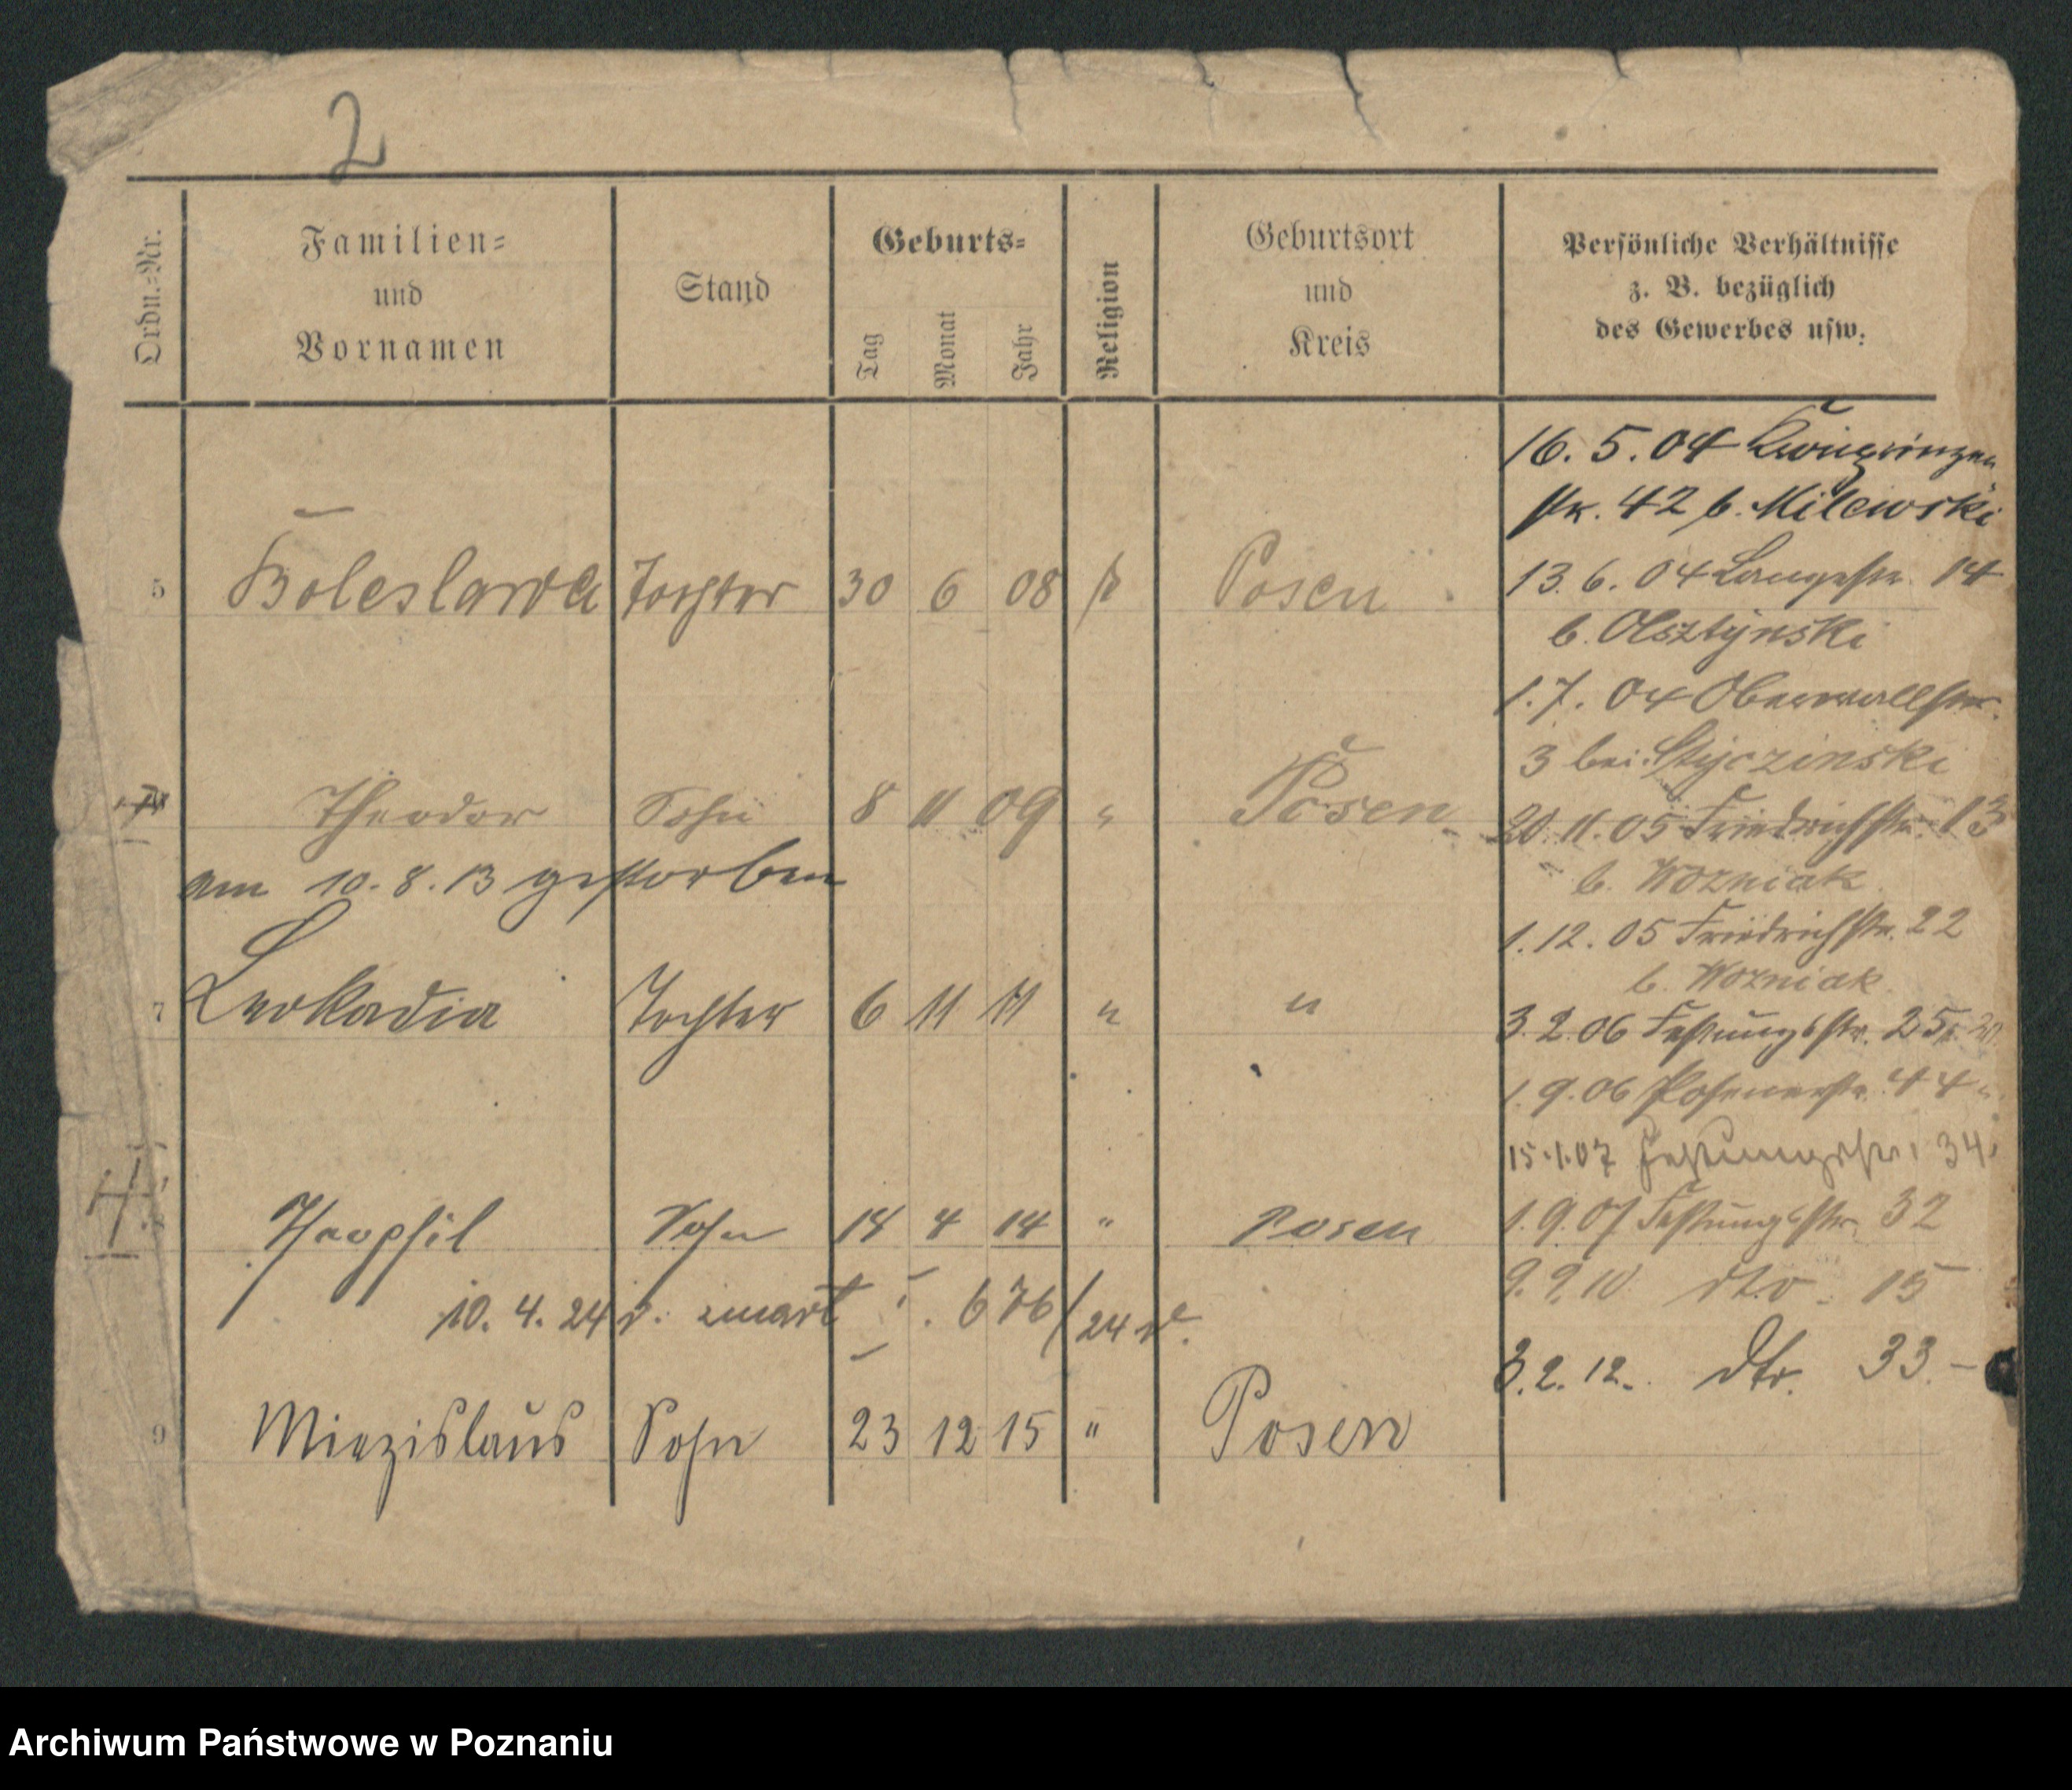 2
Ordn.-Nr.
Familien-
und
Vornamen
Stand
Geburts-
Tag
Monat
Jahr
Religion
Geburtsort
und
Kreis
Persönliche Verhältnisse
z. B. bezüglich
des Gewerbes usw.
5 Boleslawa Tochter 30 6 08 k Posen
Theodor Sohn 8 11 09 " Posen
am 10.8.13 gestorben
7 Leokadia Tochter 6 11 11 " "
Theophil Sohn 14 4 14 " Posen
10. 4. 24 r. zmarł 676/24 r.
9 Miezislaus Sohn 23 12 15 " Posen
16. 5. 04 Kronprinzen
str. 42 b. Milewski
13. 6. 04 Langestr. 14
b. Olsztynski
1. 7. 04 Oberwallstr.
3 bei Styczinski
20. 11. 05 Friedrichstr. 13
b. Wozniak
1. 12. 05 Friedrichstr. 22
b. Wozniak
3. 2. 06 Festungsstr. 25
1. 9. 06 Posenerstr. 44
15. 1. 07 Festungsstr. 34
1. 9. 07 Festungsstr. 32
9. 9. 10 dto. 15
3. 2. 12. dto. 33. –
Archiwum Państwowe w Poznaniu